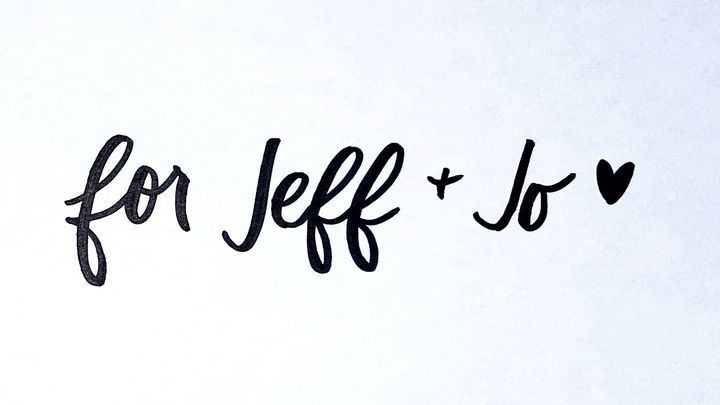 for Jeff + Jo ♥